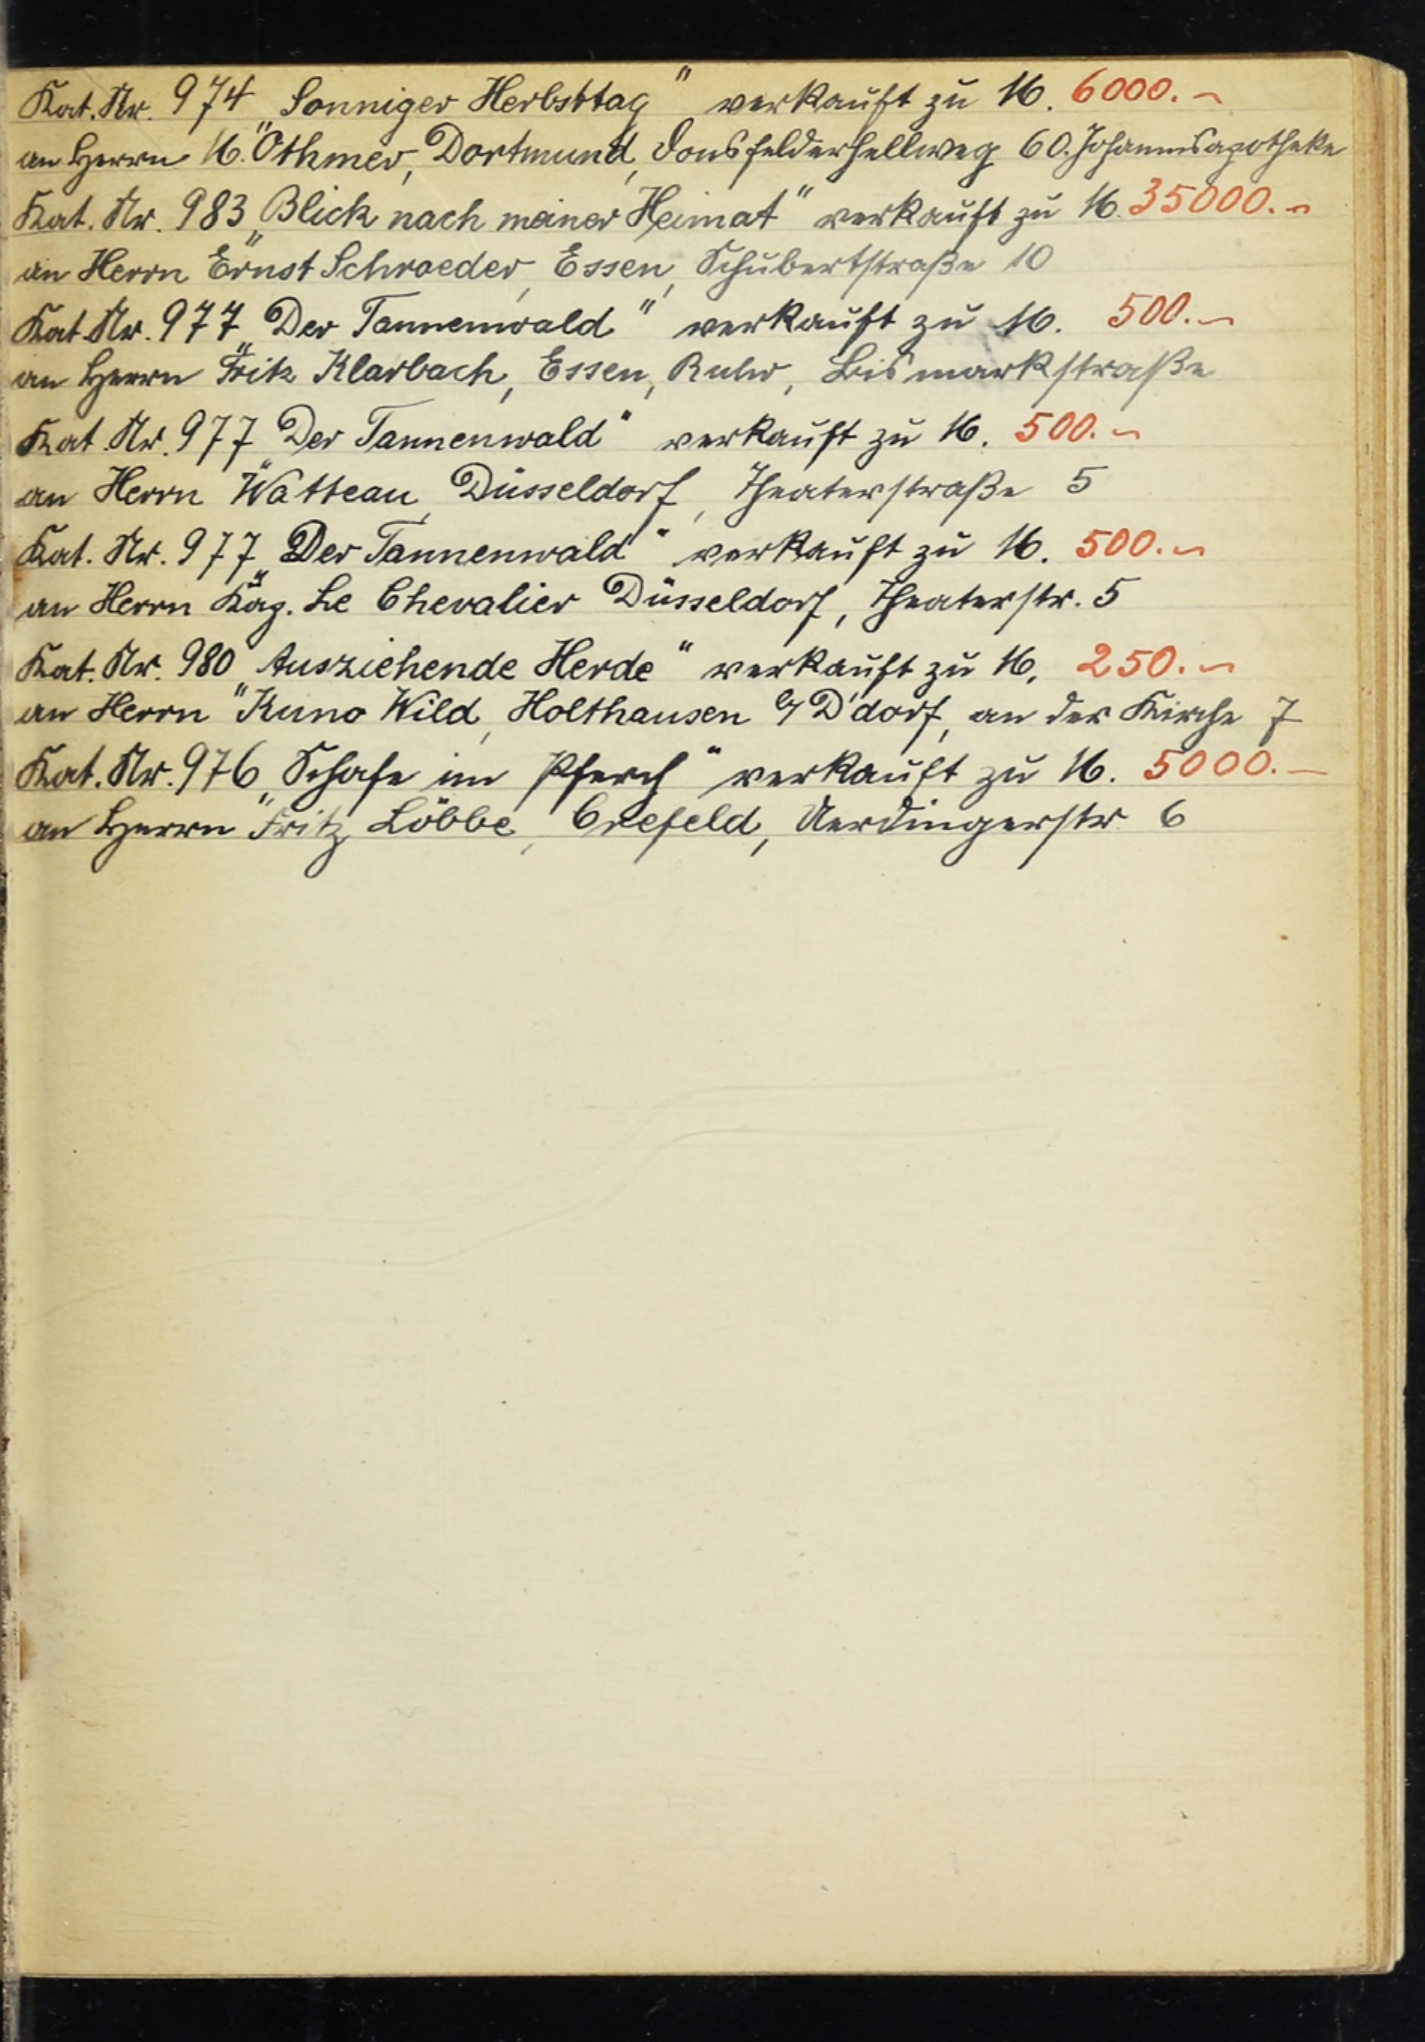 Kat. Nr. 974 „Sonniger Herbsttag" verkauft zu M. 6000.–
an Herrn M. Othmer, Dortmund, Donsfelderhellweg 60. Johannisapotheke
Kat. Nr. 983 „Blick nach meiner Heimat" verkauft zu M. 35000.–
an Herrn Ernst Schroeder, Essen, Schubertstraße 10
Kat. Nr. 977 „Der Tannenwald" verkauft zu M. 500.–
an Herrn Fritz Klarbach, Essen, Ruhr, Bismarkstraße
Kat. Nr. 977 „Der Tannenwald" verkauft zu M. 500.–
an Herrn Watteau, Düsseldorf, Theaterstraße 5
Kat. Nr. 977 „Der Tannenwald" verkauft zu M. 500.–
an Herrn Le Chevalier Düsseldorf, Theaterstr. 5
Kat. Nr. 980 „Ausziehende Herde" verkauft zu M. 250.–
an Herrn Kuno Wild, Holthausen D'dorf, an der Kirche 7
Kat. Nr. 976 „Schafe im Pferch" verkauft zu M. 5000.–
an Herrn Fritz Löbbe, Crefeld, Uerdingerstr. 6